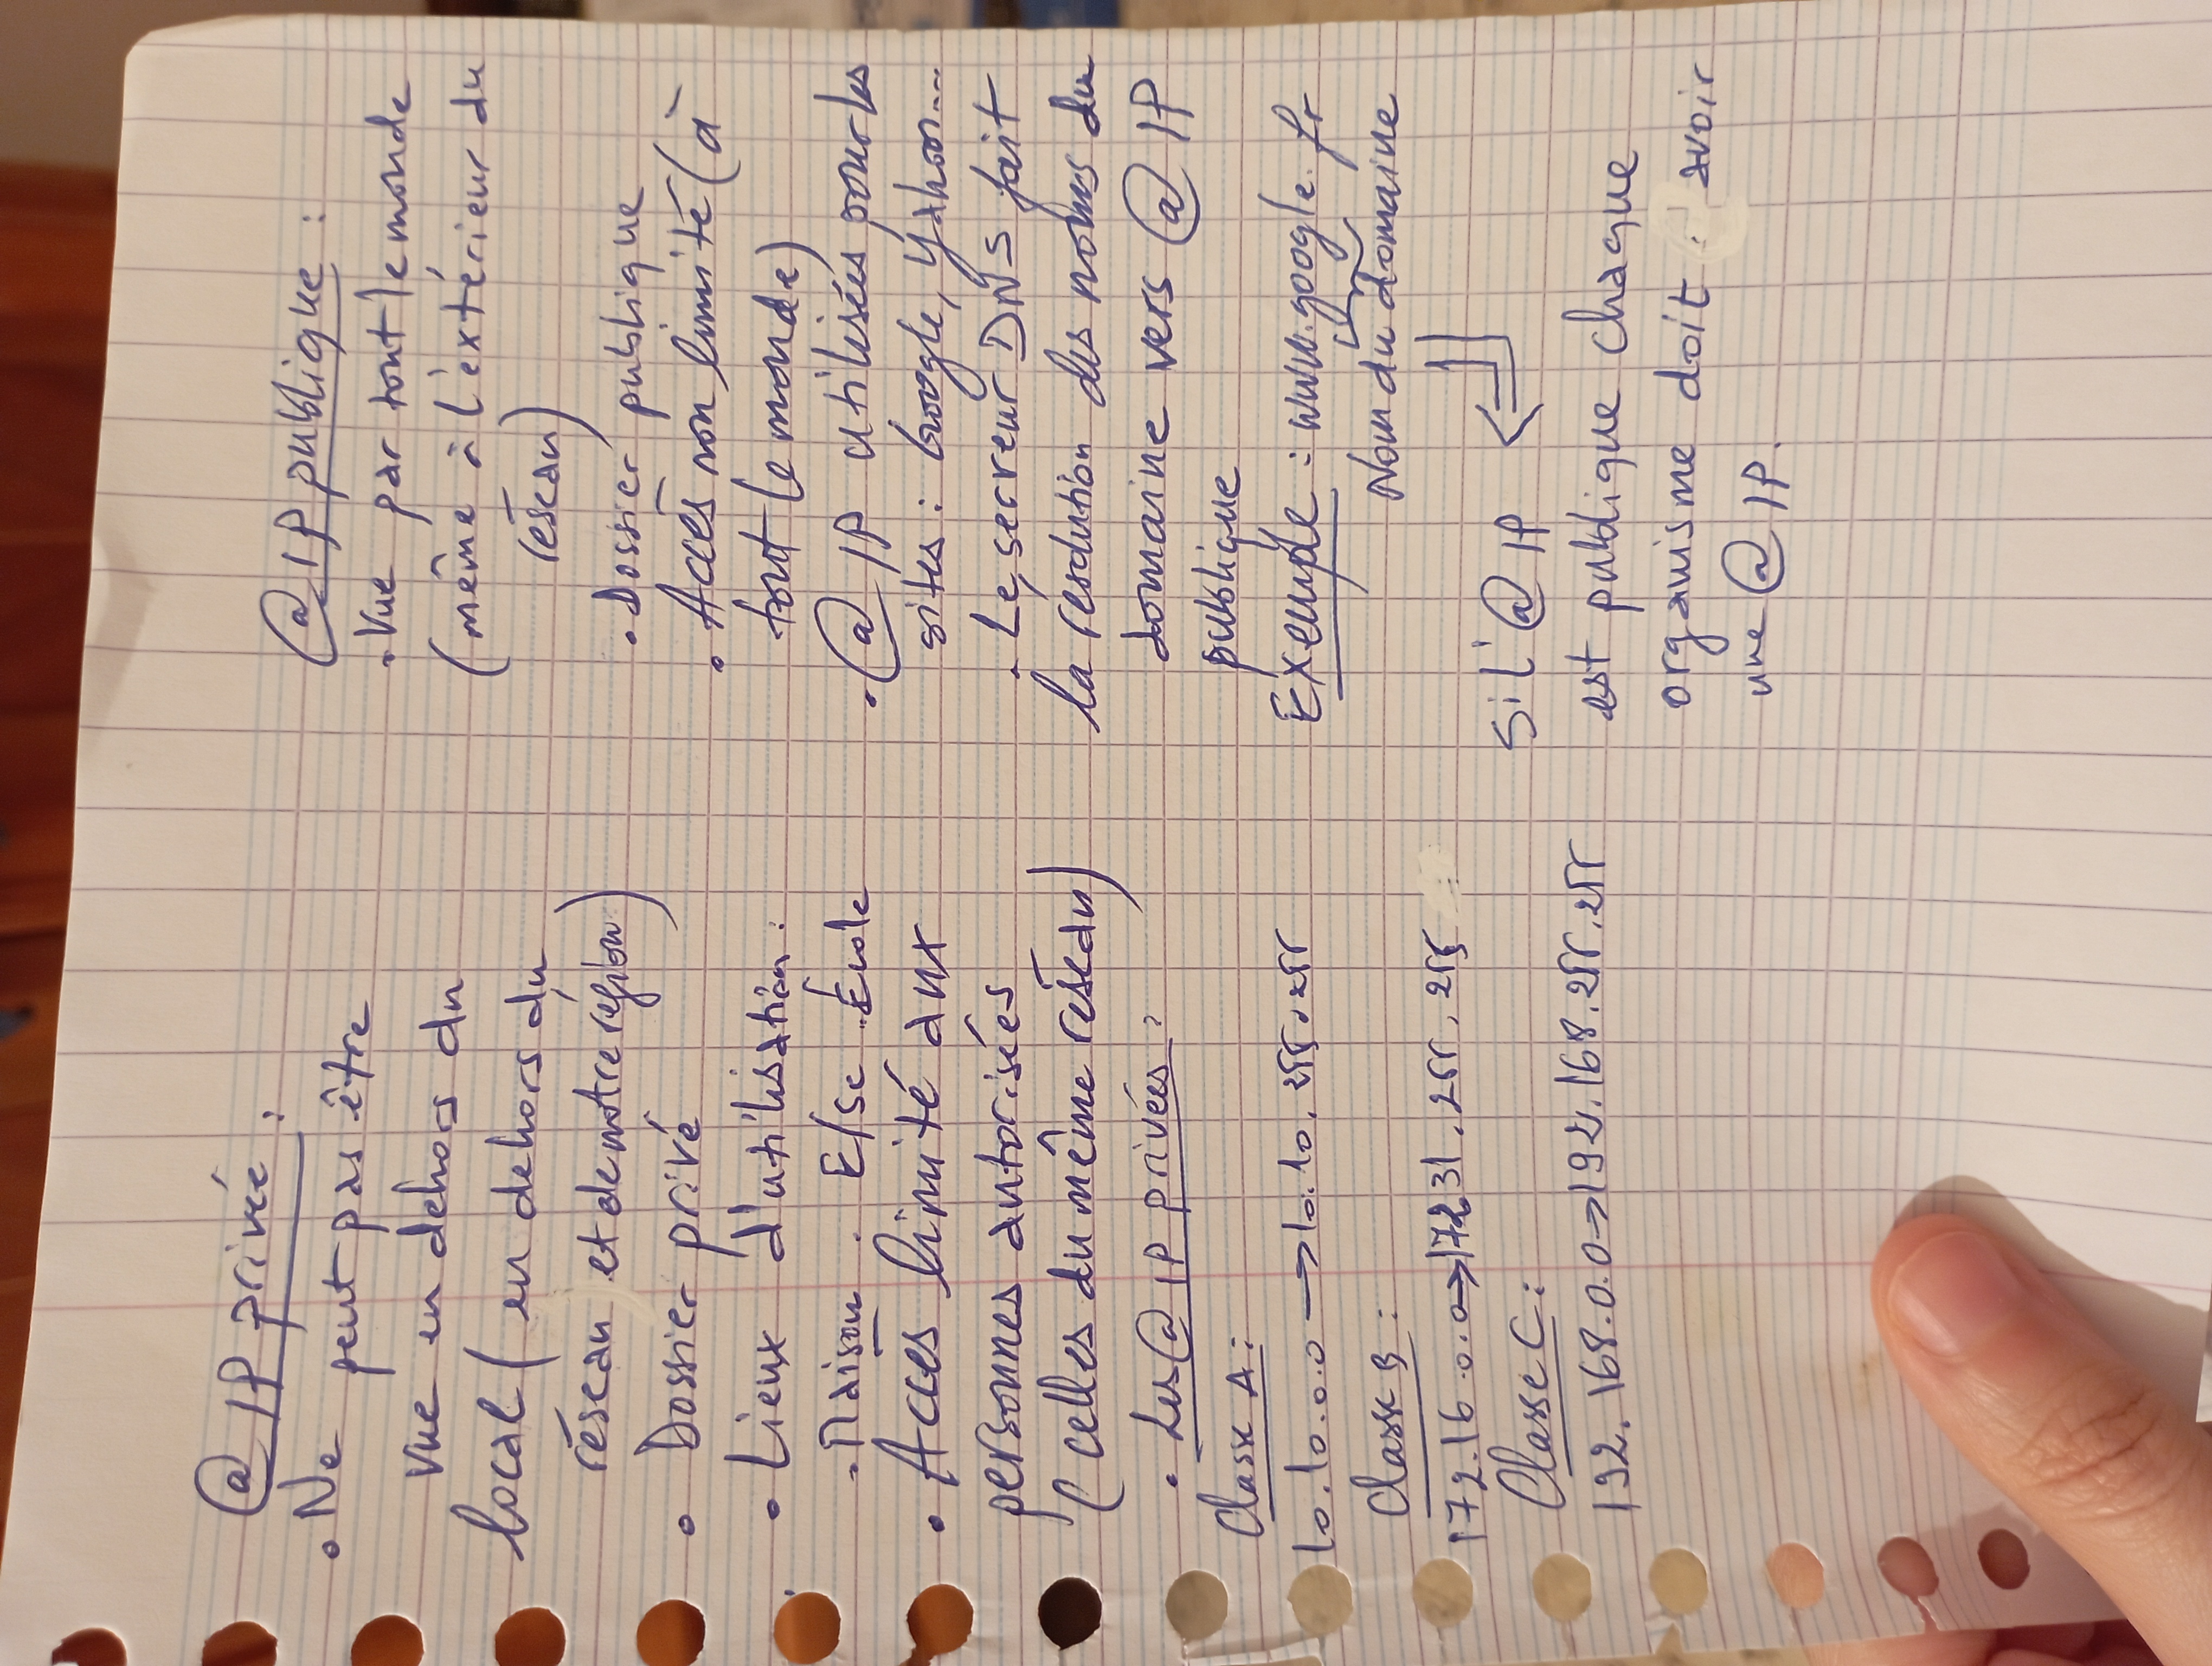 @ IP privée :
• Ne peut pas être
vue en dehors du
local (en dehors du
réseau et de notre région)
• Dossier privé
• Lieux d'utilisation :
. Maison . E/se . École
• Accès limité aux
personnes autorisées
(celles du même réseau)
• Les @ IP privées :
Classe A :
10.10.0.0 → 10.10.255.255
Classe B :
172.16.0.0 → 172.31.255.255
Classe C :
192.168.0.0 → 192.168.255.255
@ IP publique :
• Vue par tout le monde
(même à l'extérieur du
réseau)
• Dossier publique
• Accès non limité (à
tout le monde)
• @ IP utilisées pour les
sites : Google, Yahoo...
• Le serveur DNS fait
la résolution des noms du
domaine vers @ IP
publique
Exemple : www.google.fr
Nom du domaine
Si l'@ IP ⇐
est publique chaque
organisme doit avoir
une @ IP.